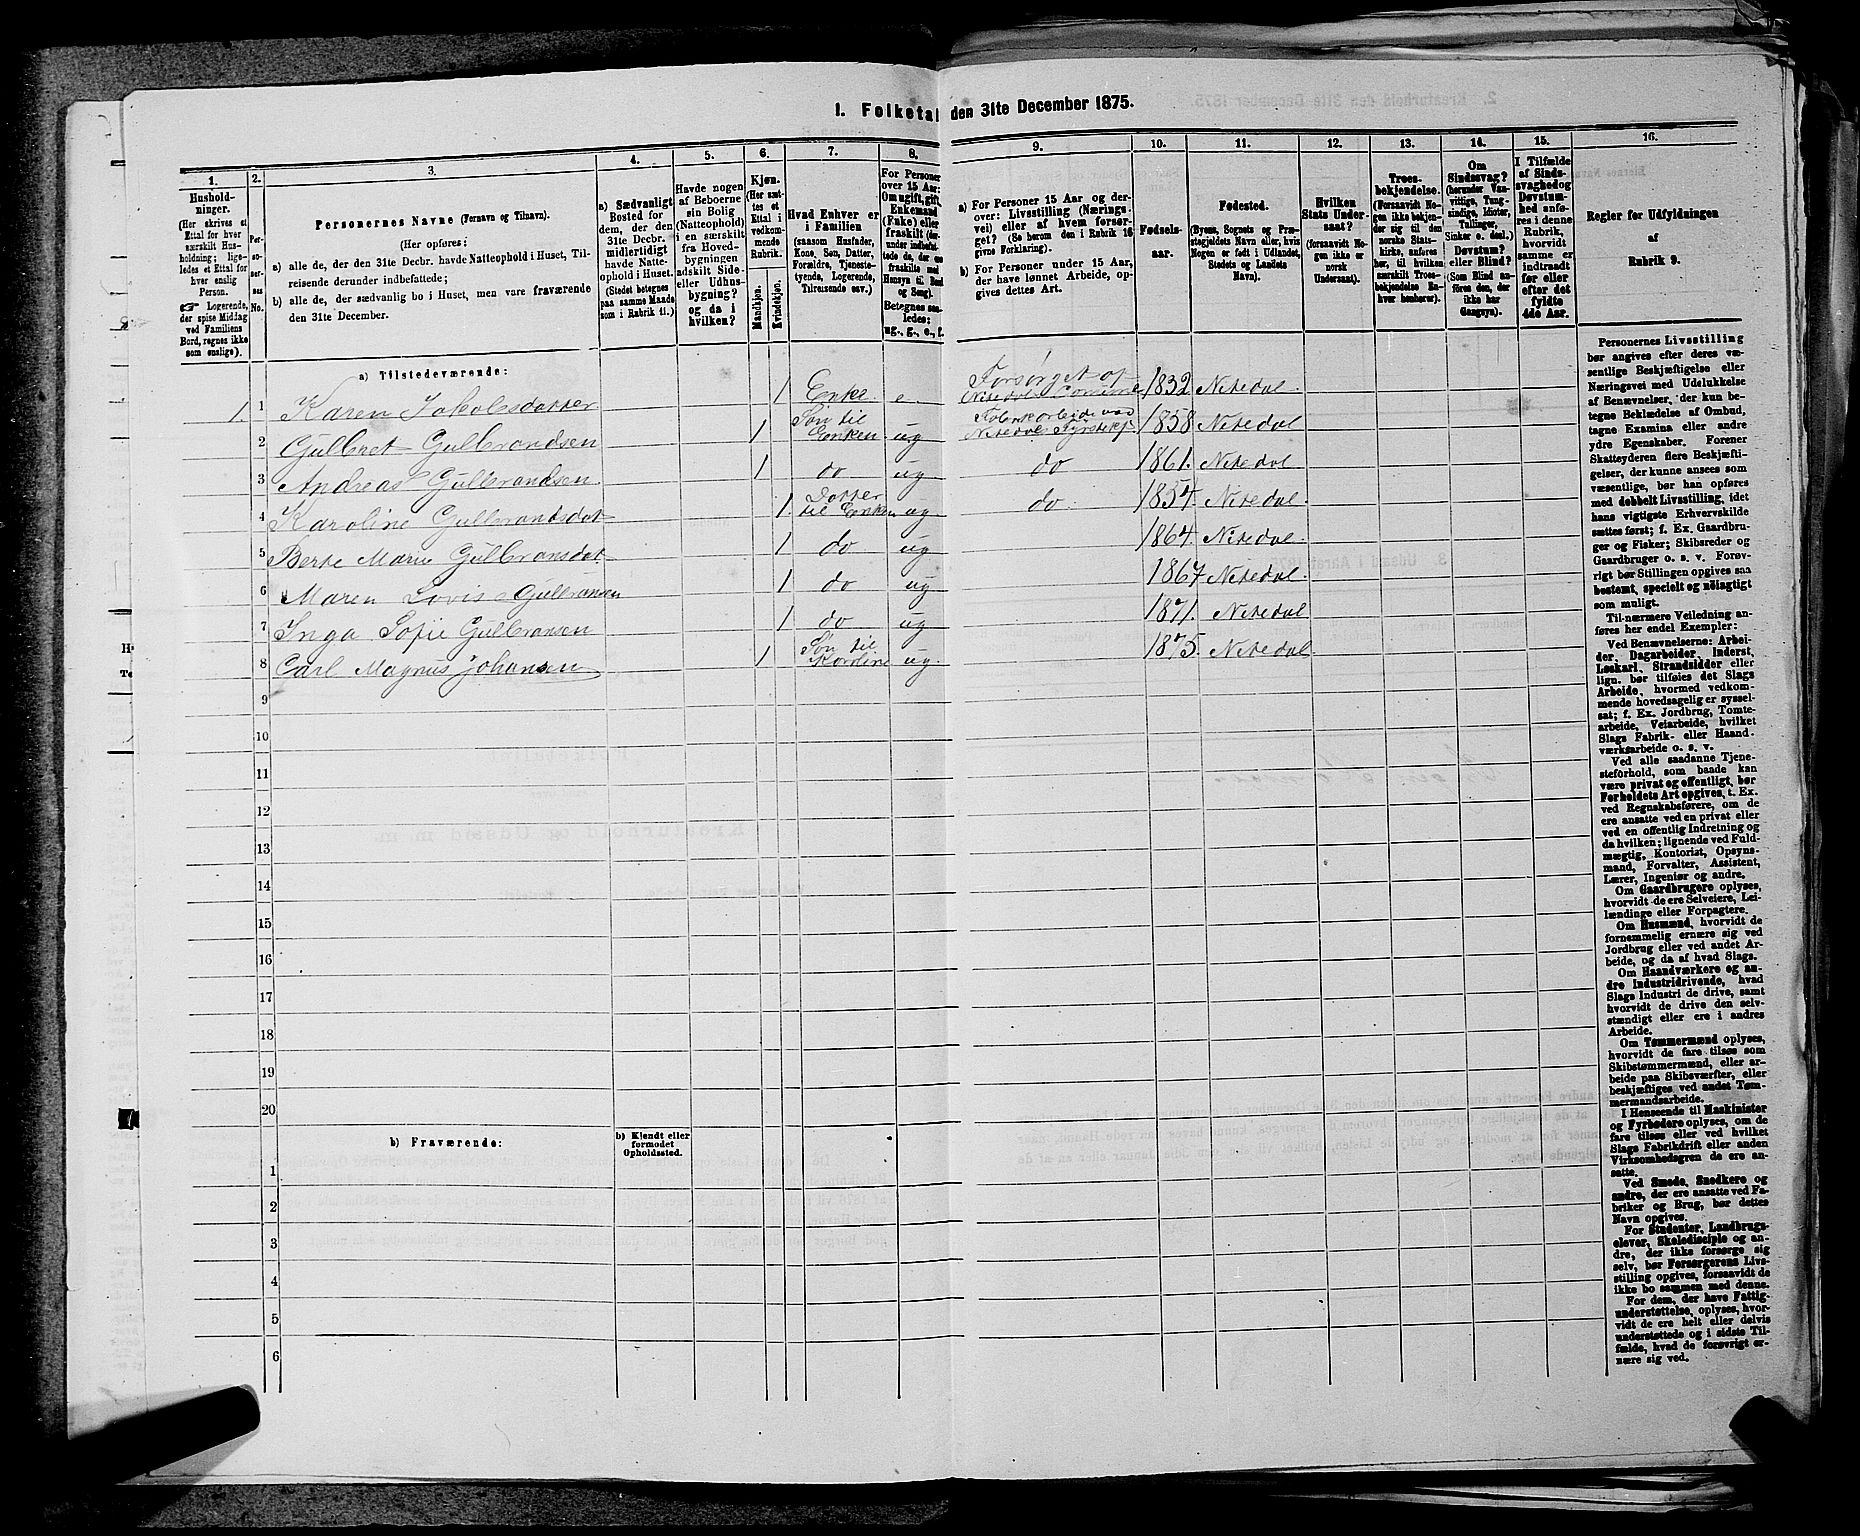 1. Folketal den 31te December 1875.
1.
Husholdninger.
(Her skrives et
Ettal for hver
særskilt Husholdning;
ligeledes et Ettal for
hver enslig
Person.
☞ Logerende,
der spise Middag
ved Familiens
Bord, regnes ikke
som enslige).
2.
Personernes
No.
3.
Personernes Navne (Fornavn og Tilnavn).
(Her opføres:
a) alle de, der den 31te Decbr. havde Natteophold i Huset, Tilreisende derunder indbefattede;
b) alle de, der sædvanlig bo i Huset, men vare fraværende
den 31te December.
4.
a) Sædvanligt
Bosted for
dem, der den
31te Decbr.
midlertidigt
havde Natteophold i Huset.
(Stedet betegnes
paa samme Maade
som i Rubrik 11.)
5.
Havde nogen
af Beboerne
sin Bolig
(Natteophold)
i en særskilt
fra Hovedbygningen
adskilt Side-
eller Udhusbygning?
og da i
hvilken?
6.
Kjøn.
(Her sættes et
Ettal i
vedkommende
Rubrik.
Mandkjøn.
Kvindekjøn.
7.
Hvad Enhver er
i Familien
(saasom Husfader,
Kone, Søn, Datter,
Forældre, Tjenestetyende, Logerende,
Tilreisende osv.)
8.
For Personer
over 15 Aar:
Om ugift, gift,
Enkemand
(Enke) eller
fraskilt
Betegnes saaledes:
ug., g., e., f.
9.
a) For Personer 15 Aar og derover: Livsstilling (Næringsvei) eller af hvem forsørget? (Se herom den i Rubrik 16
givne Forklaring).
b) For Personer under 15 Aar,
der have lønnet Arbeide, opgives dettes Art.
10.
Fødselsaar.
11.
Fødested.
(Byens, Sognets og Præstegjeldets Navn eller, hvis
Nogen er født i Udlandet,
Stedets og Landets
Navn).
12.
Hvilken
Stats Undersaat?
(forsaavidt Nogen ikke er
norsk
Undersaat).
13.
Troesbekjendelse.
(Forsaavidt Nogen ikke bekjender sig til den
norske Statskirke, anføres
her, til hvilken
særskilt Troesbekjendelse Enhver henhører).
14.
Om
Sindssvag?
(herunder Vanvittige, Tungsindige, Idioter,
Tullinger,
Sinker o. desl.)
Døvstum?
eller Blind?
(Som Blind anføres den, der
ikke har
Gangsyn).
15.
I Tilfælde
af Sindssvaghed og
Døvstumhed anføres i denne
Rubrik,
hvorvidt
samme er
indtraadt
før eller
efter det
fyldte
4de Aar.
16.
Regler for Udfyldningen
af
Rubrik 9.
a) Tilstedeværende:
1. 1 Karen Jakobsdatter 1 Enke. e. Forsørget af Nitedals Comune 1832 Nitedal.
2 Gulbret Gulbrandsen 1 Søn til Enken. ug 1858 Nitedal
3 Andreas Gulbrandsen 1 do ug do 1861. Nitedal
4 Karoline Gulbrandsdat 1. Datter til Enken ug. do. 1854. Nitedal.
5 Berte Marie Gulbransdat. 1 do ug 1864. Nitedal.
6 Maren Lovise Gulbransen 1 do ug 1867 Nitedal.
7 Inga Sofie Gulbransen 1 do ug 1871. Nitedal
8 Carl Magnus Johansen 1 Søn til Karoline ug. 1875. Nitedal.
9
10
11
12
13
14
15
16
17
18
19
20
b) Fraværende:
b) Kjendt eller
formodet
Opholdssted.
1
2
3
4
5
6
Personernes Livsstilling
bør angives efter deres væsentlige Beskjæftigelse eller
Næringsvei med Udelukkelse
af Benævnelser, der kun betegne Beklædelse af Ombud,
tagne Examina eller andre
ydre Egenskaber. Forener
Skatteyderen flere Beskjæftigelser, der kunne ansees som
væsentlige, bør han opføres
med dobbelt Livsstilling, idet
hans vigtigste Erhvervskilde
sættes først; f. Ex. Gaardbruger og Fisker; Skibsreder og
Gaardbruger o. s. v. Forøvrigt bør Stillingen opgives saa
bestemt, specielt og nøiagtigt
som muligt.
Til nærmere Veiledning anføres her endel Exempler:
Ved Benævnelserne: Arbeider, Dagarbeider, Inderst,
Løskarl, Strandsidder eller
lign. bør tilføies det Slags
Arbeide, hvormed vedkommende hovedsagelig er sysselsat; f. Ex. Jordbrug, Tomtearbeide, Veiarbeide, hvilket
Slags Fabrik- eller Haandværksarbeide o. s. v.
Ved alle saadanne Tjenesteforhold, som baade kan
være privat og offentligt, bør
Forholdets Art opgives, t. Ex.
ved Regnskabsførere, om de
ere ansatte ved en privat eller
ved en offentlig Indretning og
da hvilken; lignende ved Fuldmægtig, Kontorist, Opsynsmand, Forvalter, Assistent,
Lærer, Ingeniør og andre.
Om Gaardbrugere oplyses,
hvorvidt de ere Selveiere, Leilændinge eller Forpagtere.
Om Husmænd, hvorvidt de
fornemmelig ernære sig ved
Jordbrug eller ved andet Arbeide, og da af hvad Slags.
Om Haandværkere og andre Industridrivende, hvad
Slags Industri de drive, samt
hvorvidt de drive den selvstændigt eller ere i andres
Arbeide.
Om Tømmermænd oplyses,
hvorvidt de fare tilsøs som
Skibstømmermænd, eller arbeide paa Skibsværfter, eller
beskjæftiges ved andet Tømmermandsarbeide.
I Henseende til Maskinister
og Fyrbødere oplyses, om de
fare tilsøs eller ved hvilket
Slags Fabrikdrift eller anden
Virksomhedsgren de ere ansatte.
Ved Smede, Snedkere og
andre, der ere ansatte ved Fabriker og Brug, bør dettes
Navn opgives.
For Studenter, Landbrugselever, Skoledisciple og andre, der ikke forsørge sig
selv, bør Forsørgerens Livsstilling opgives, forsaavidt de
ikke bo sammen med denne.
For dem, der have Fattigunderstøttelse, oplyses, hvorvidt de ere helt eller delvis
understøttede og i sidste Tilfælde, hvad de forøvrigt ernære sig ved.